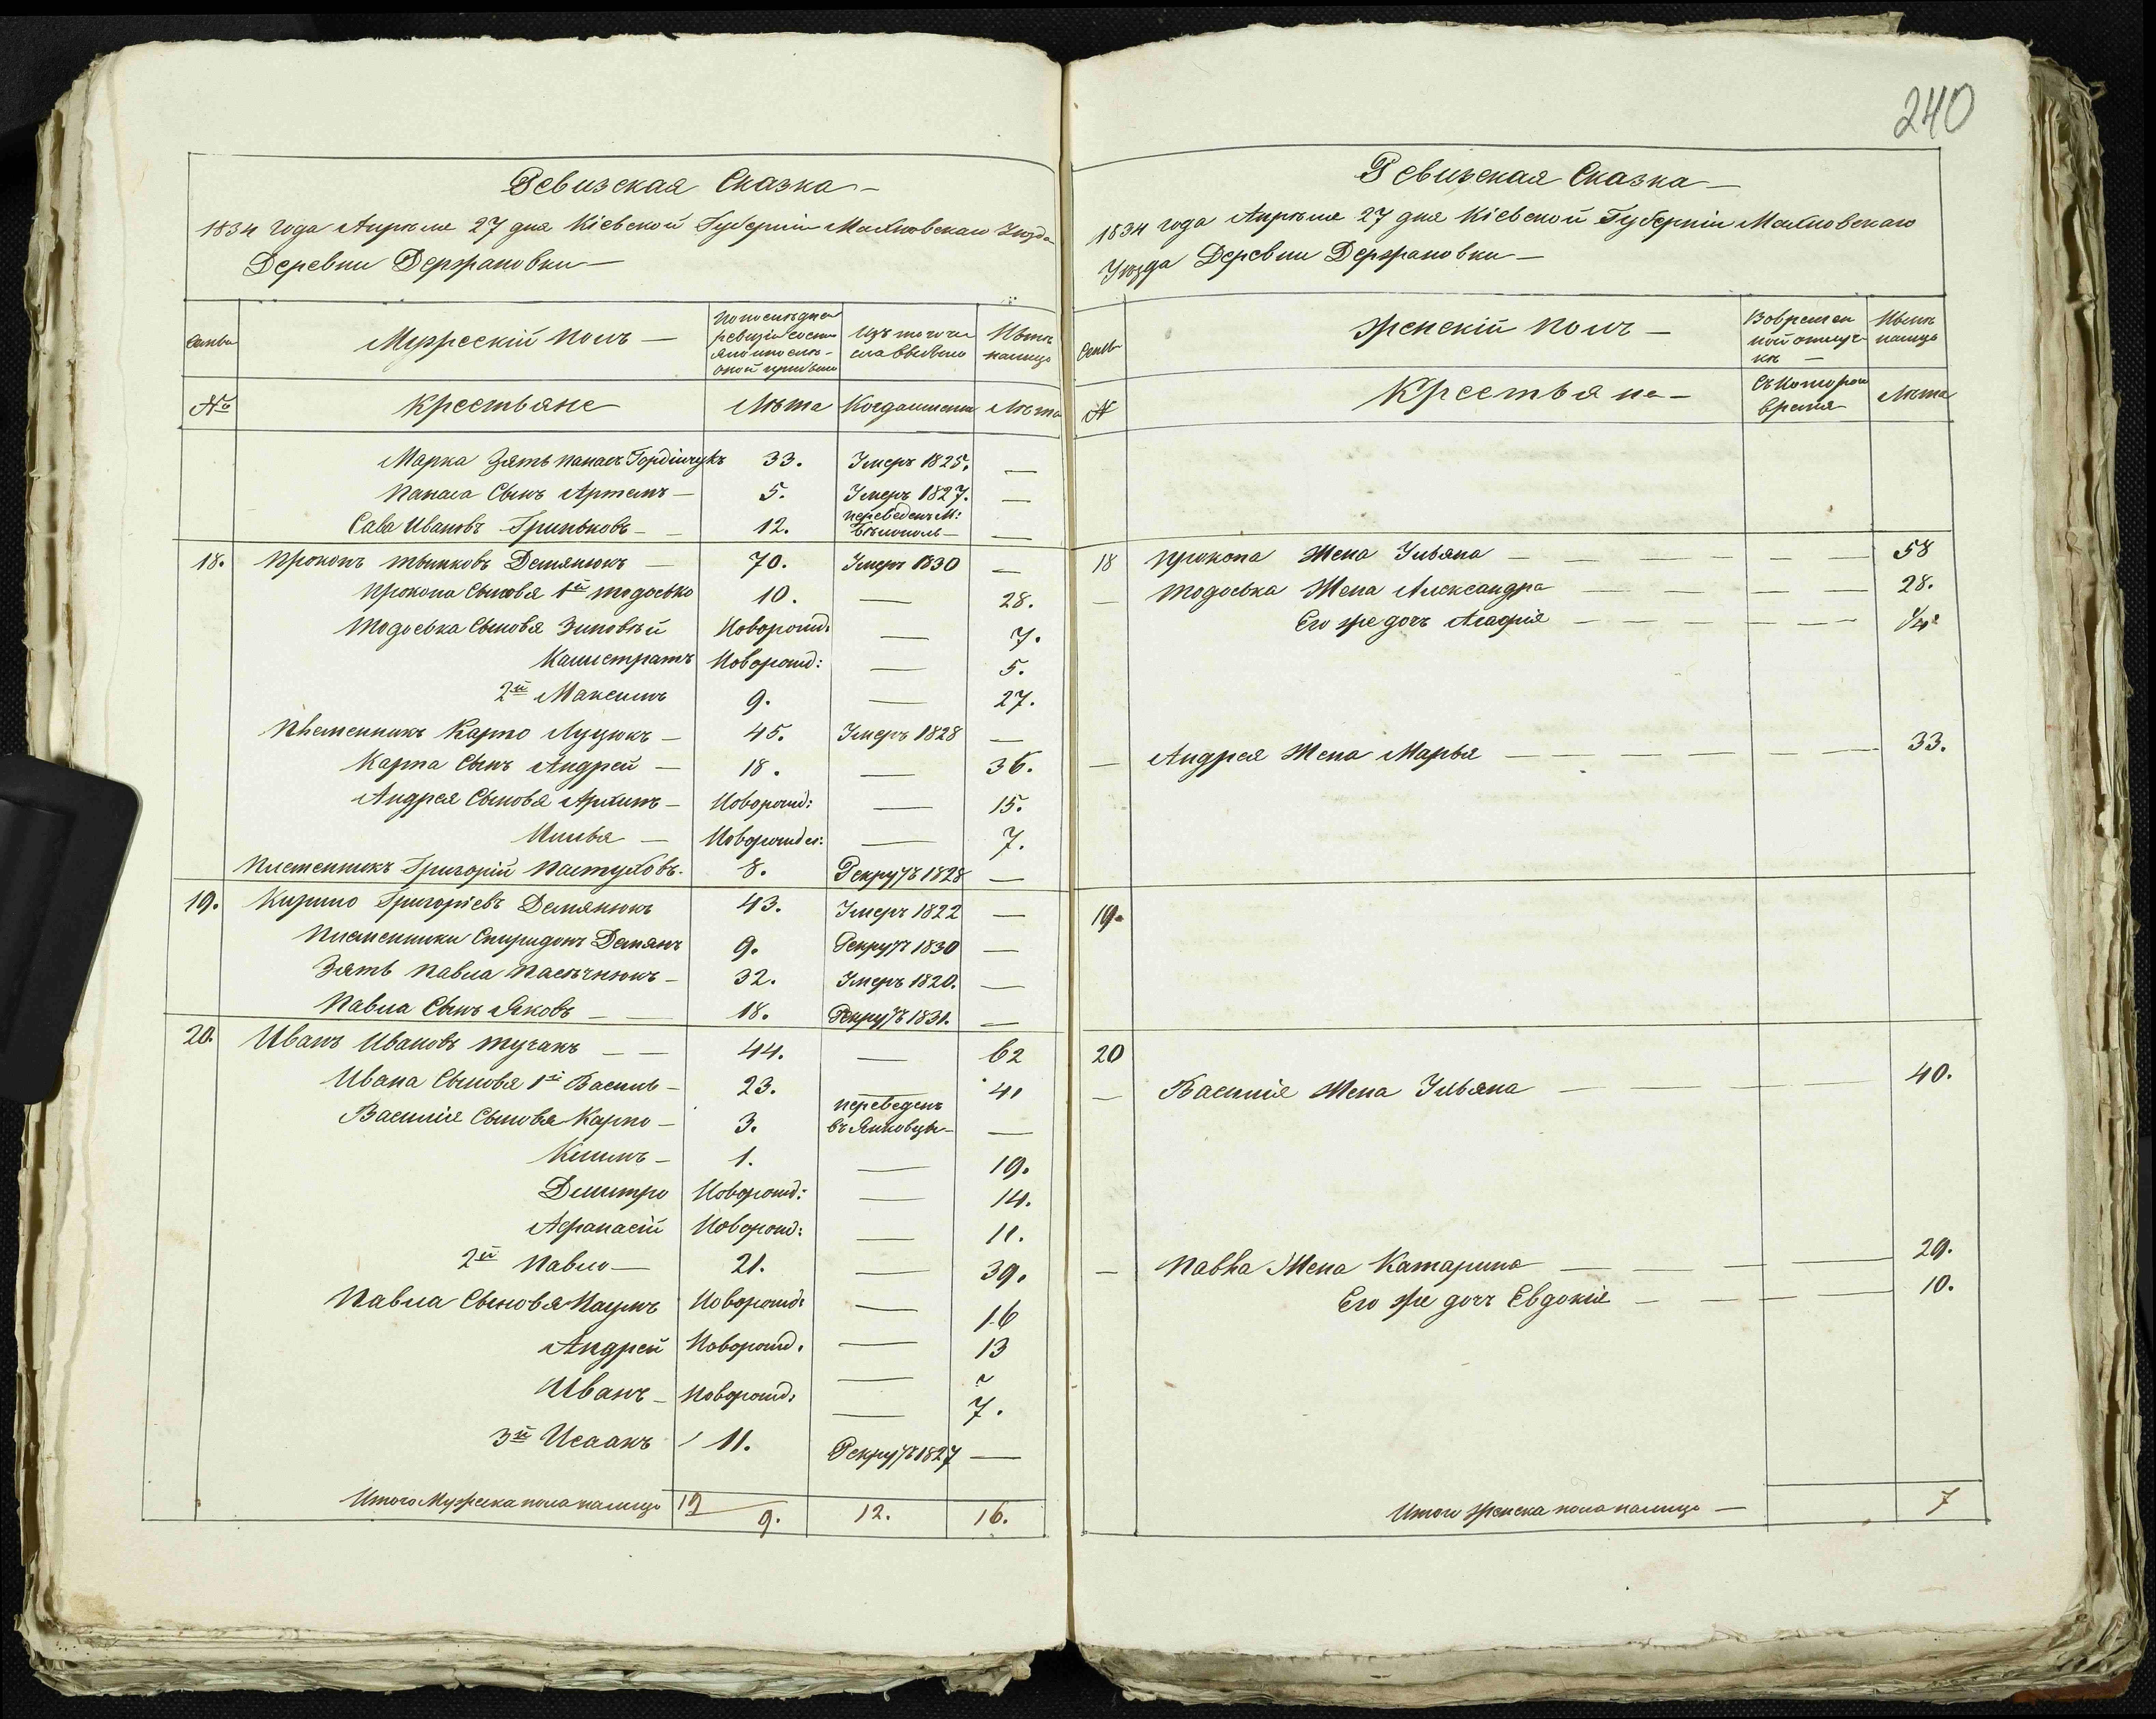 240
Ревизская Сказка
1834 года Апреля 27 дня Кіевской Губерніи Махновскаго Уезда
Деревни Держановки
Семьи
Мужескій полъ
По последней ревизіи состояло и после оной прибыло
Изъ того числа выбыло
Ныне налицо
№
Крестьяне
Лета
Когда именно
Лета
Марка Зять Панасъ Гордійчукъ 33. Умеръ 1825. —
Панаса Сынъ Артемъ 5. Умеръ 1827. —
Сава Ивановъ Гриньковъ 12. переведенъ М: Белополь —
18. Прокопъ Тышковъ Демянюкъ 70. Умеръ 1830 —
Прокопа Сыновья 1й Тодоська 10. — 28.
Тодоська Сыновья Зиновѣй Новорожд: — 7.
Калистратъ Новорожд: — 5.
2й Максимъ 9. — 27.
Племенникъ Карпо Луцюкъ 45. Умеръ 1828 —
Карпа Сынъ Андрей 18. — 36.
Андрея Сыновья Архипъ Новорожд: — 15.
Илья Новорожден: — 7.
Племенникъ Григорій Пастуховъ 8. Рекрутъ 1828 —
19. Кирило Григоріевъ Демянюкъ 43. Умеръ 1822 —
Племенники Спиридонъ Демянъ 9. Рекрутъ 1830 —
Зять Павла Пасечнюкъ 32. Умеръ 1820. —
Павла Сынъ Яковъ 18. Рекрутъ 1831. —
20. Иванъ Ивановъ Тучакъ 44. — 62
Ивана Сыновья 1й Василь 23. — 41
Василія Сыновья Карпо 3. переведенъ въ Янковцы —
Климъ 1. — 19.
Дмитро Новорожд: — 14.
Афанасій Новорожд: — 11.
2й Павло 21. — 39.
Павла Сыновья Наумъ Новорожд: — 16
Андрей Новорожд. — 13
Иванъ Новорожд: — 7.
3й Исаакъ 11. Рекрутъ 1827 —
Итого Мужеска пола налицо 19 9. 12. 16.
Ревизская Сказка
1834 года Апреля 27 дня Кіевской Губерніи Махновскаго
Уезда Деревни Держановки
Семьи
Женскій полъ
Во временной отлучке
Ныне налицо
№
Крестьяне
Съ котораго времени
Лета
18 Прокопа Жена Ульяна 58
Тодоська Жена Александра 28.
Его же дочь Агафія 1/4
Андрея Жена Марья 33.
19.
20
Василія Жена Ульяна 40.
Павла Жена Катарина 29.
Его же дочь Евдокія 10.
Итого женска пола налицо 7